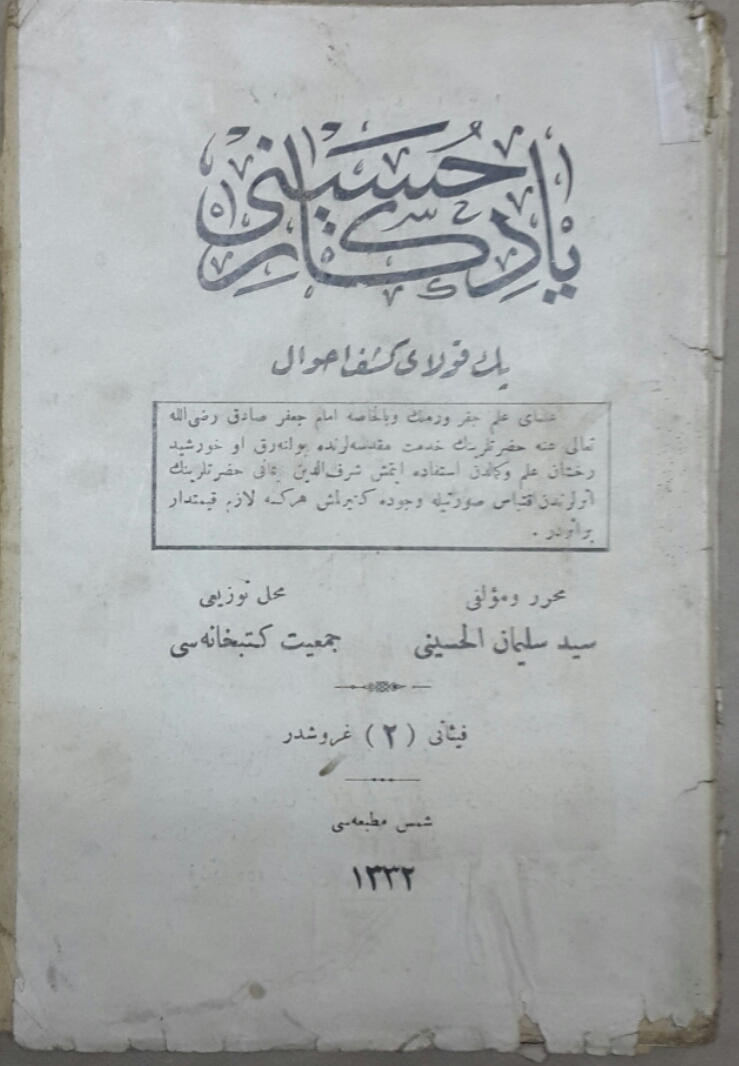 يادكار حسينى
پك قولاى كشف احوال
علماى علم جفر ورمل وبالخاصه امام جعفر صادق رضى الله
تعالى عنه حضرتلرينك خدمت مقدسه‌لرنده بولنه‌رق او خورشيد
رخشان علم وكمالدن استفاده ايتمش شرف‌الدين يمانى حضرتلرينك
اثرلرندن اقتباس صورتيله وجوده كتيرلمش هركسه لازم قيمتدار
بر اثردر .
محرر ومؤلفى
سيد سليمان الحسينى
محل توزيعى
جمعيت كتبخانه‌سى
فيئاتى (٢) غروشدر
شمس مطبعه‌سى
١٣٣٢